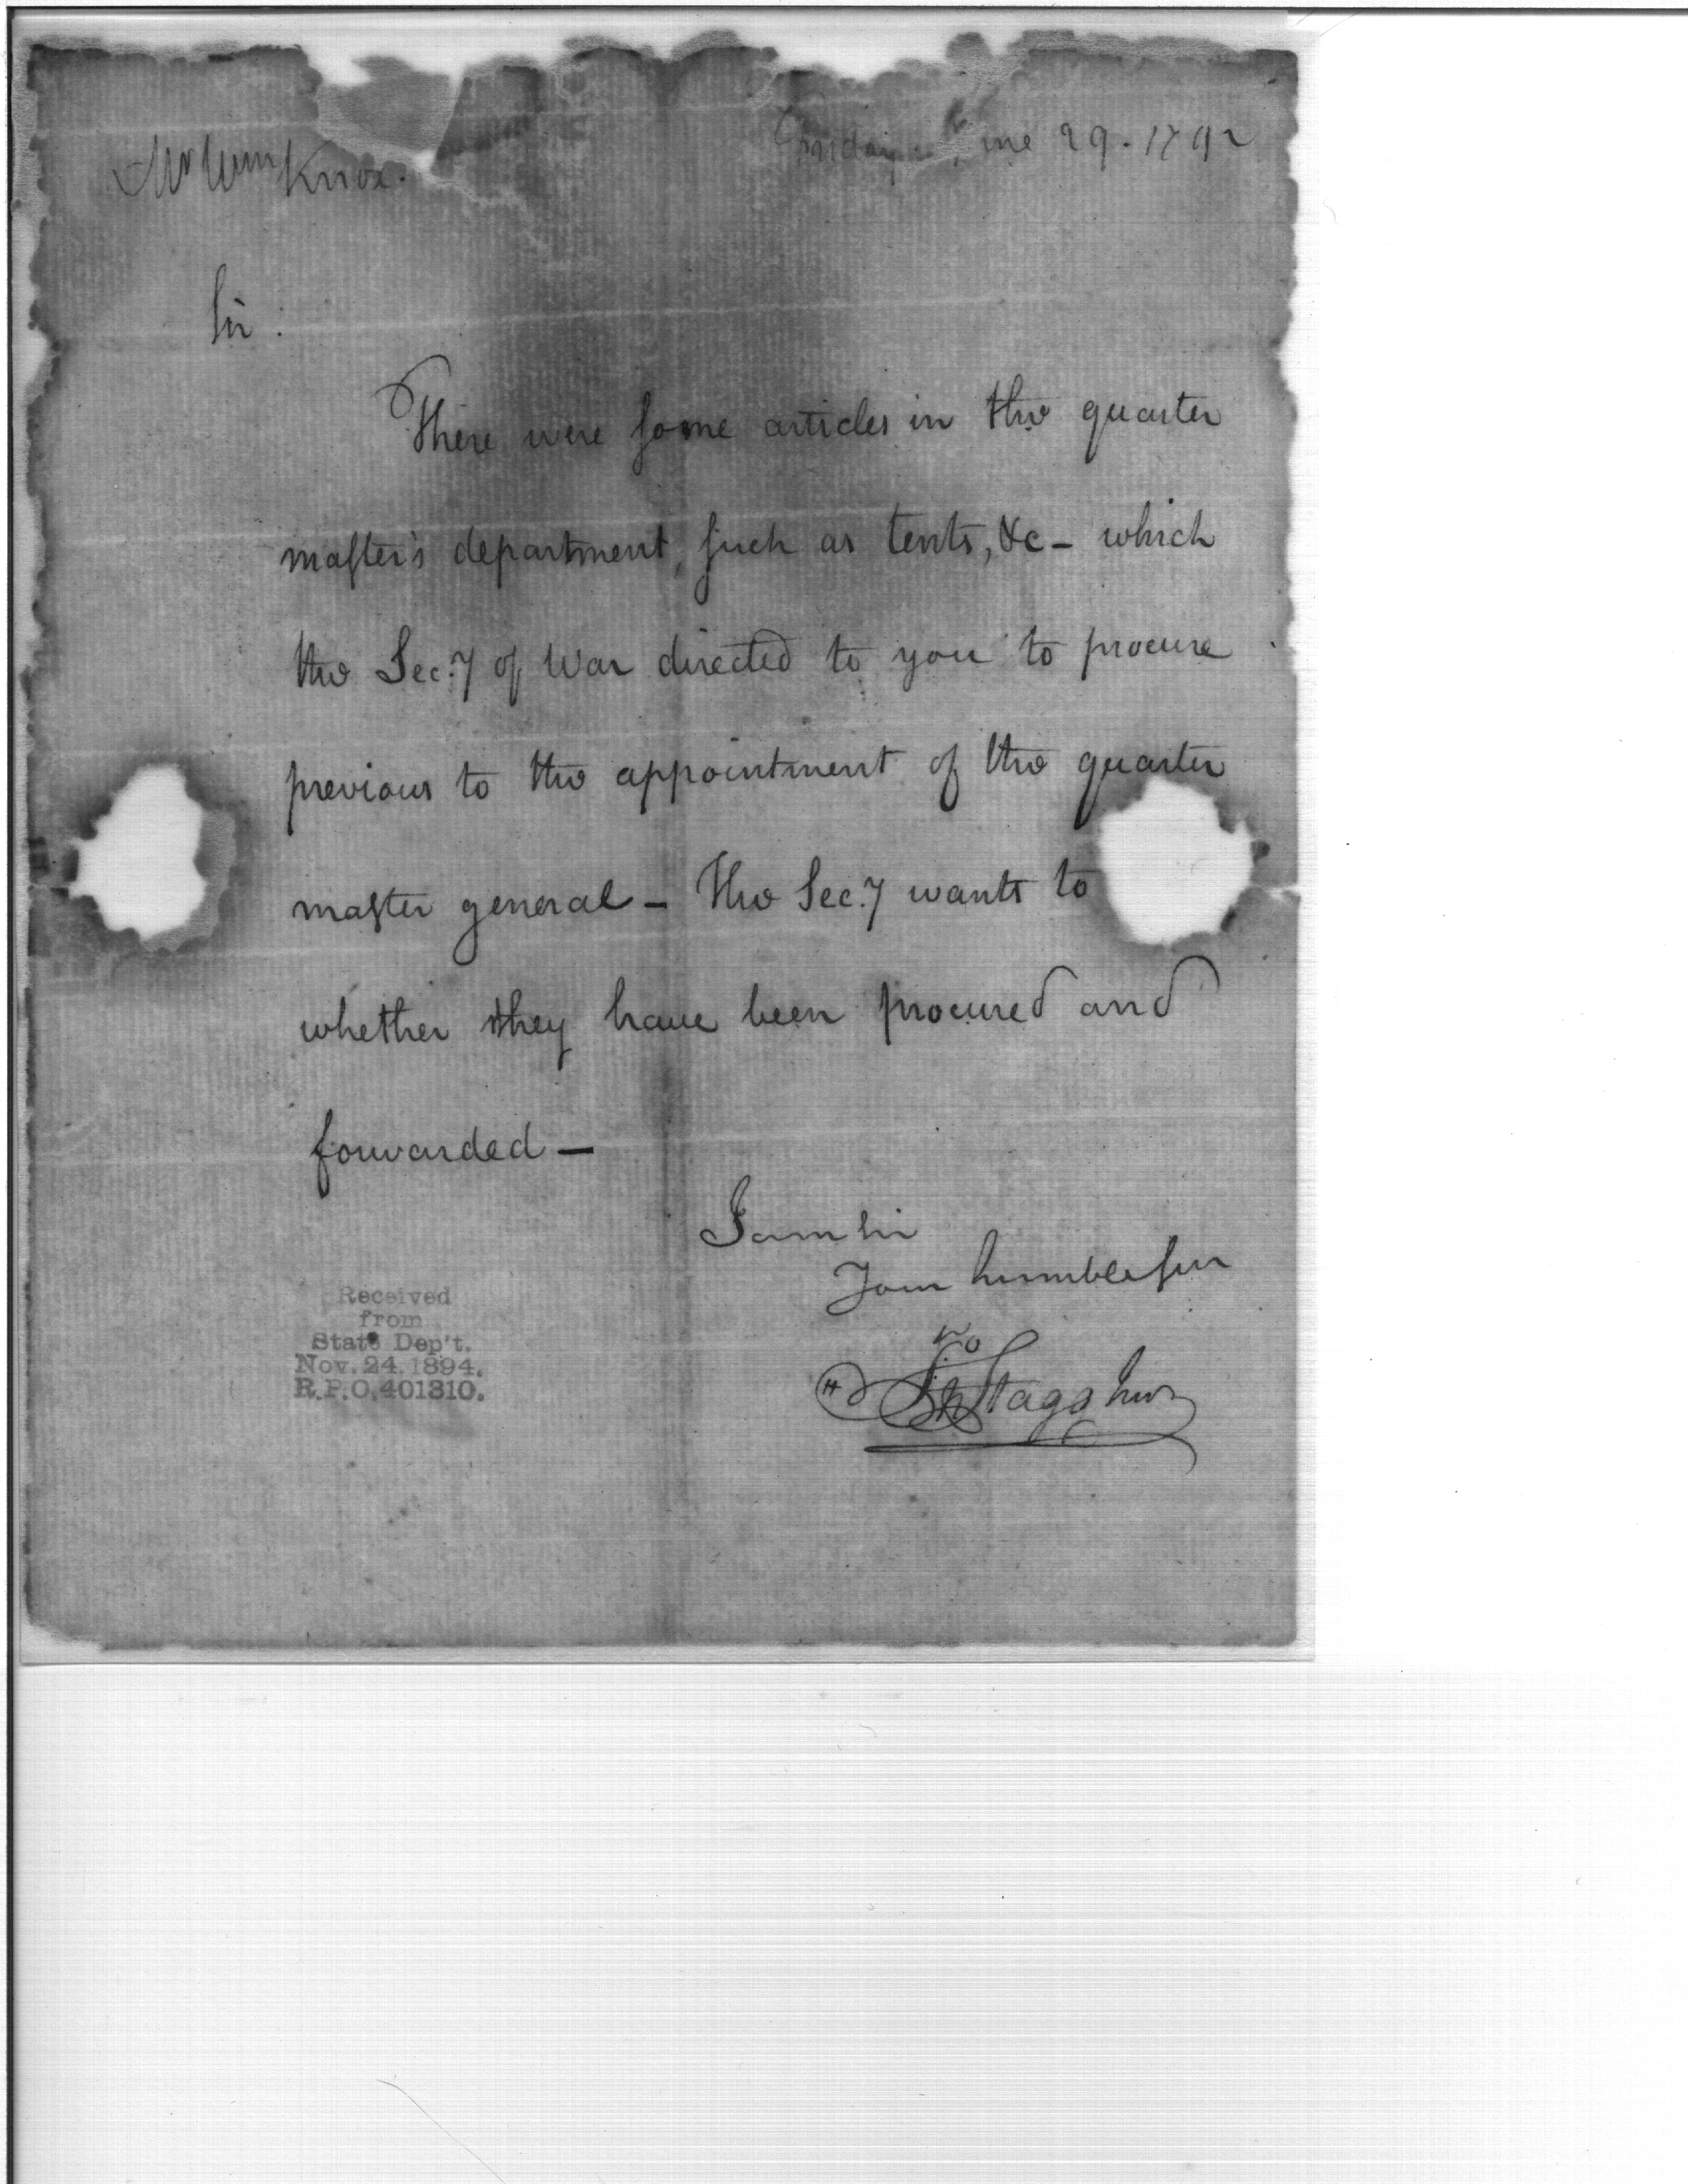 Mr Wm Knox.
Friday June 29. 1792
Sir:
There were some articles in the quarter
master's department, such as tents, &c - which
the Sec.y of War directed to you to procure
previous to the appointment of the quarter
master general - The Sec.y wants to
whether they have been procured and
forwarded -
I am Sir
Your humble ser
Jno Stagg Junr
Received
from
State Dep't.
Nov. 24. 1894.
R.P.O. 401310.